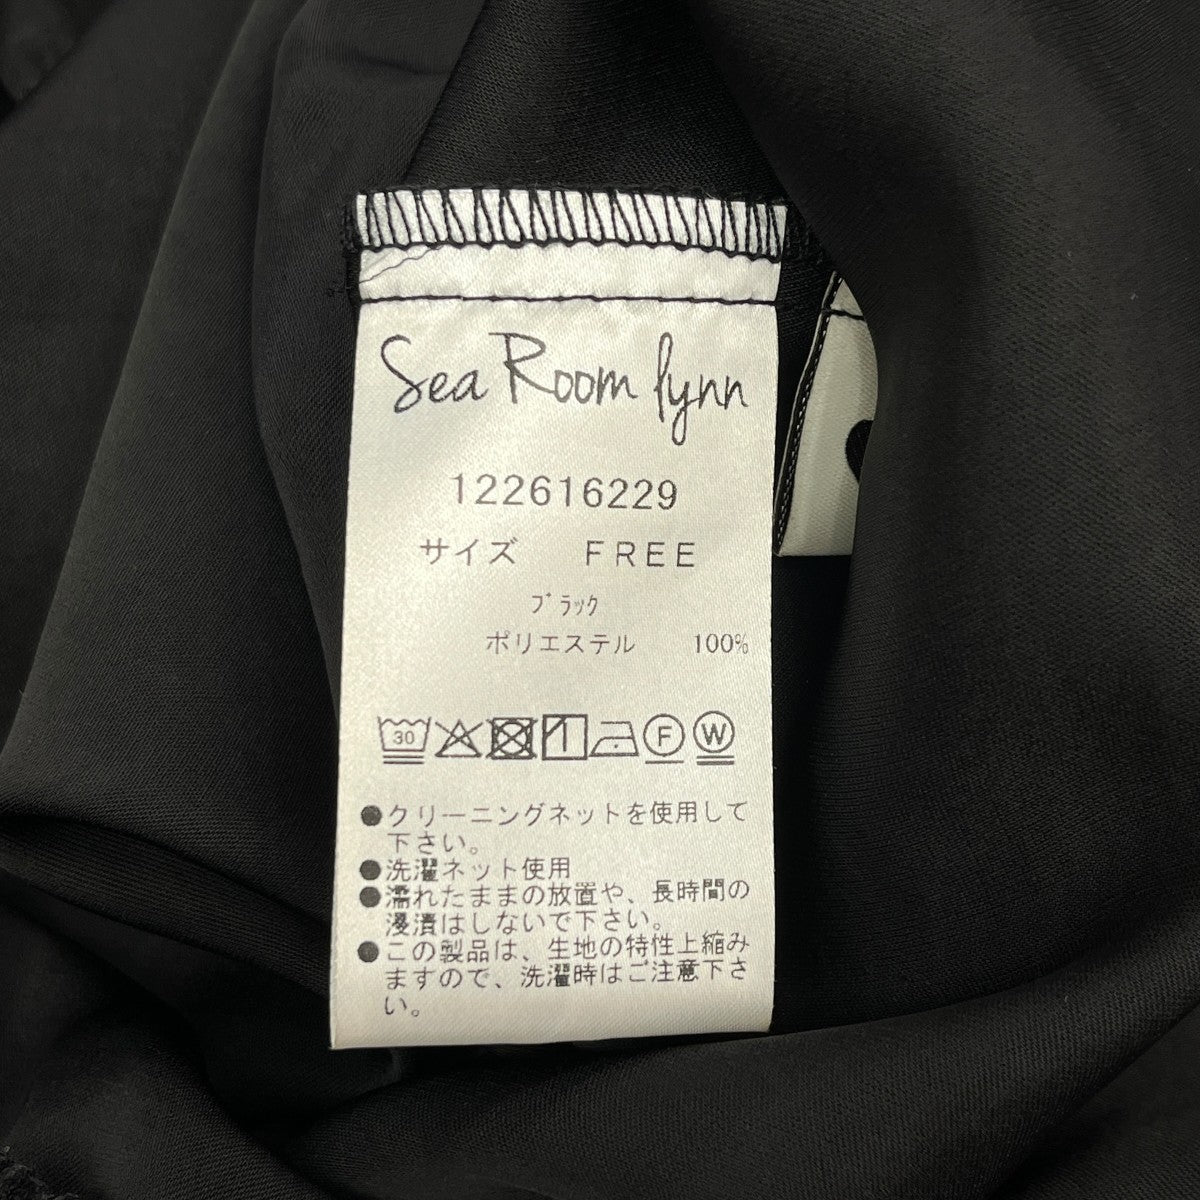 Sea Room lynn
122616229
サイズ FREE
ﾌﾞﾗｯｸ
ポリエステル 100%
30 F W
●クリーニングネットを使用して
下さい。
●洗濯ネット使用
●濡れたままの放置や、長時間の
浸漬はしないで下さい。
●この製品は、生地の特性上縮み
ますので、洗濯時はご注意下さ
い。